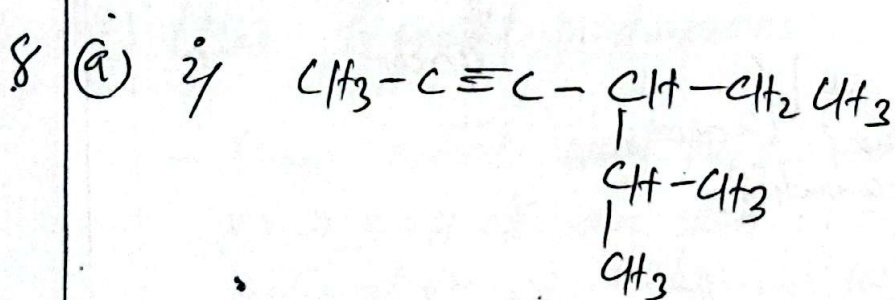 8 (a) i) CH3-C≡C-CH-CH2CH3
|
CH-CH3
|
CH3